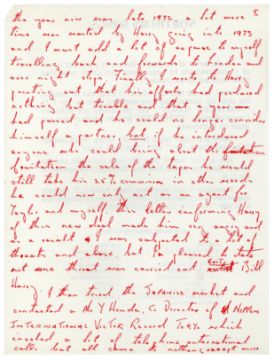 the year now was late 1972 a lot more
time was wasted by Harry going into 1973
and I must add a lot of expense to myself
travelling back and forwards to London and
over night stops. Finally I wrote to Harry
pointing out that his efforts had produced
nothing but trouble and that a year
had passed and he could no longer consider
himself a partner, but if he introduced
anyone who could bring about the
exploitation the sale of the tapes he would
still take his 25% commission in other words
he could now only act as an agent for
Taylor and myself. This letter confirming Harry
of this new deal made him very angry and
as a result I was subjected to a lot of
threats and abuse, but I'm pleased to state
not one threat was carried out Bill
Harry. I then tried the Japanese market and
contacted a Mr Y Honda, Director of Nippon
International Victor Record Tokyo which
involved a lot of telephone international
calls but all came to nothing except more